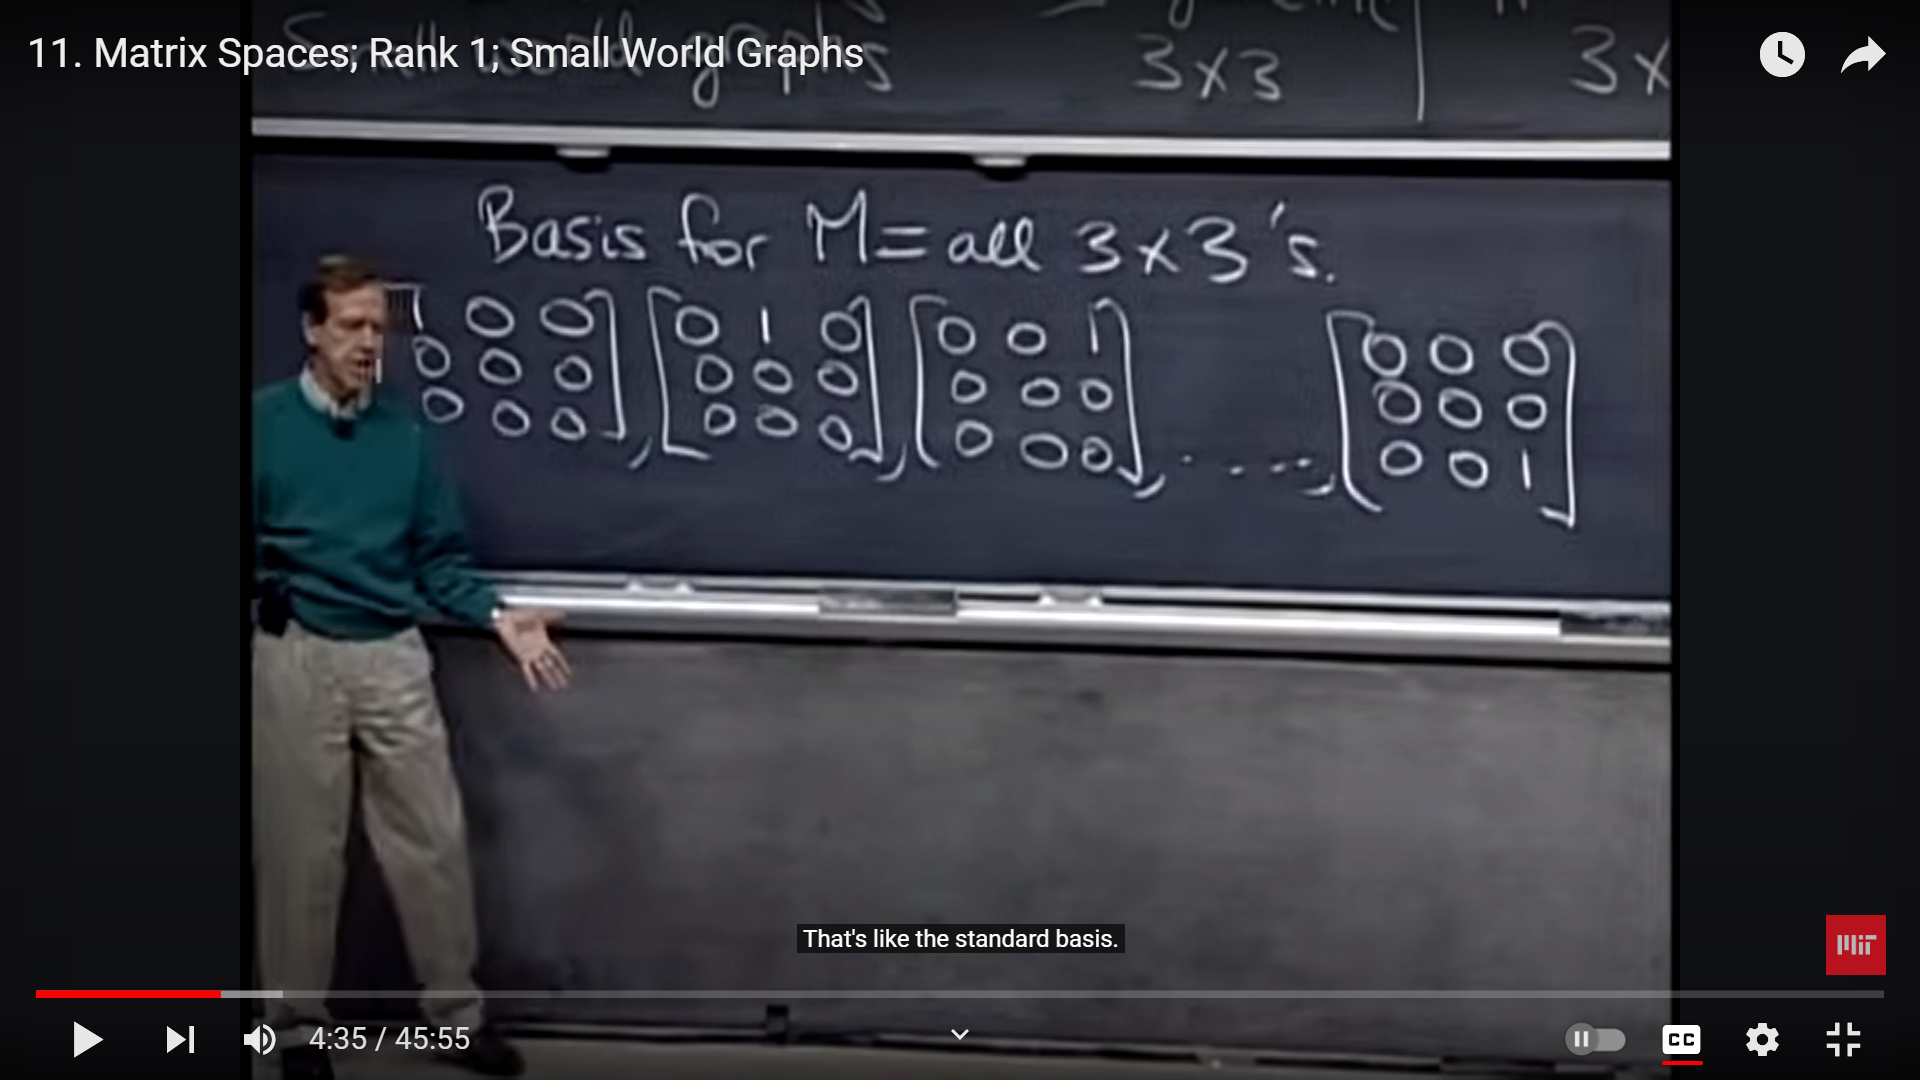 11. Matrix Spaces; Rank 1; Small World Graphs
Small world graphs
3x3
3x
Basis for M = all 3x3's.
[1 0 0], [0 1 0], [0 0 1], ...., [0 0 0]
0 0 0 0 0 0 0 0 0 0 0 0
0 0 0 0 0 0 0 0 0 0 0 1
That's like the standard basis.
MIT
4:35 / 45:55
CC